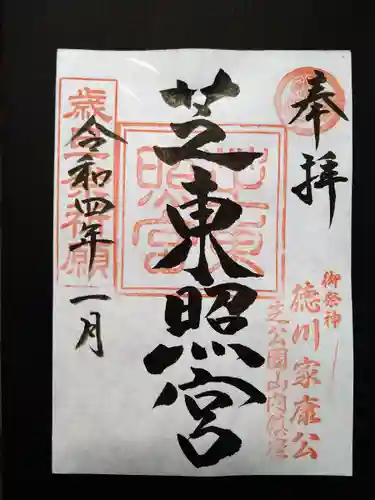 奉拝
御祭神
徳川家康公
芝公園山内鎮座
芝東照宮
歳旦祭祈願
令和四年一月